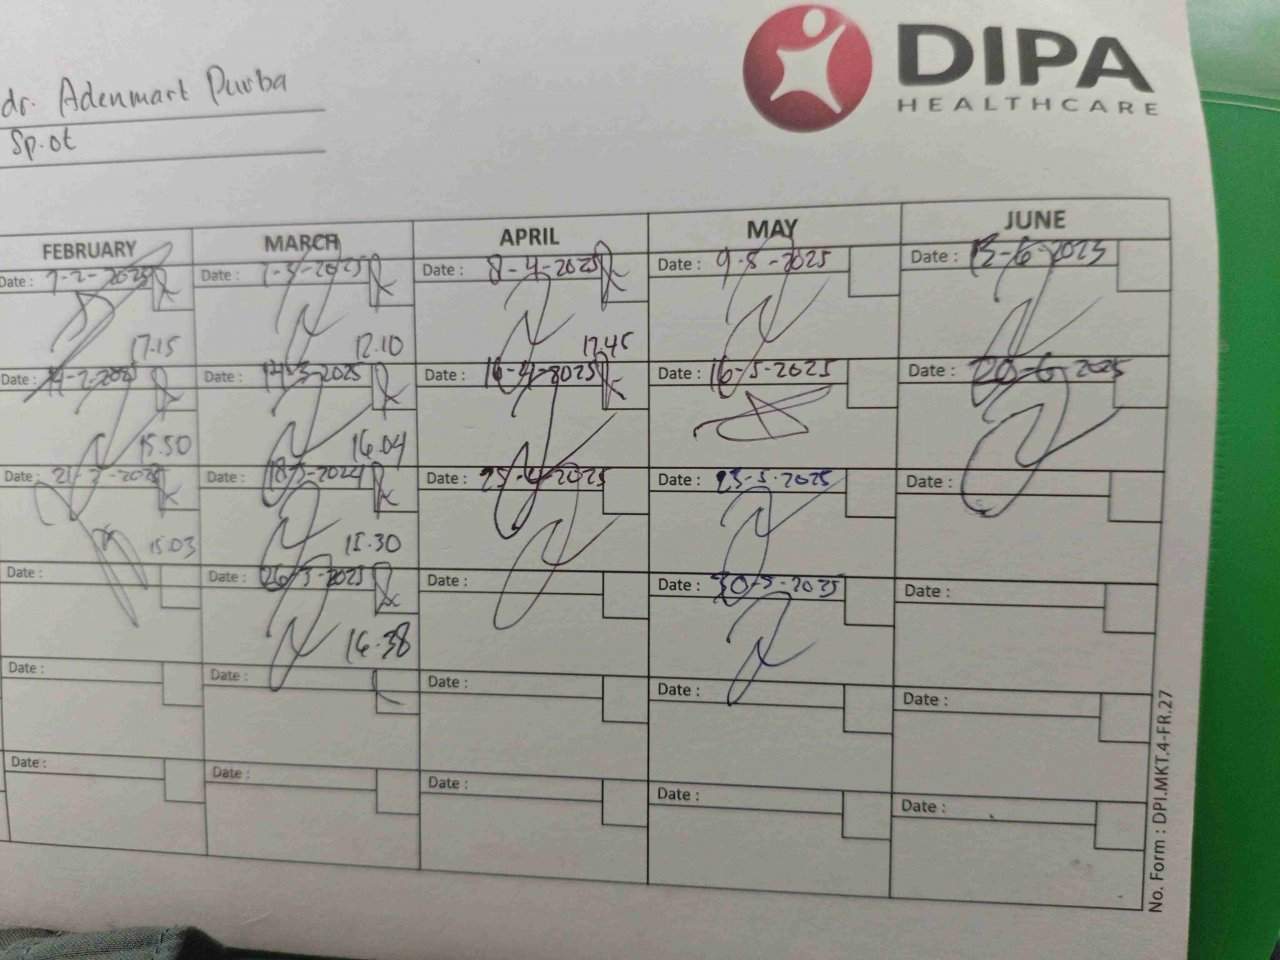 dr. Adenmart Purba
Sp.ot
DIPA
HEALTHCARE
FEBRUARY MARCH APRIL MAY JUNE
Date : 7-2-2025 Date : 7-3-2025 Date : 8-4-2025 Date : 9-5-2025 Date : 13-6-2025
17.15 17.10 17.45
Date : 14-2-2025 Date : 14-3-2025 Date : 16-4-2025 Date : 16-5-2025 Date : 20-6-2025
15.50 16.04
Date : 21-2-2025 Date : 18-3-2024 Date : 25-4-2025 Date : 23-5-2025 Date :
15.03 15.30
Date : Date : 26-3-2025 Date : Date : 30-5-2025 Date :
16.38
Date : Date : Date : Date : Date :
Date : Date : Date : Date : Date :
No. Form : DPI.MKT.4-FR.27